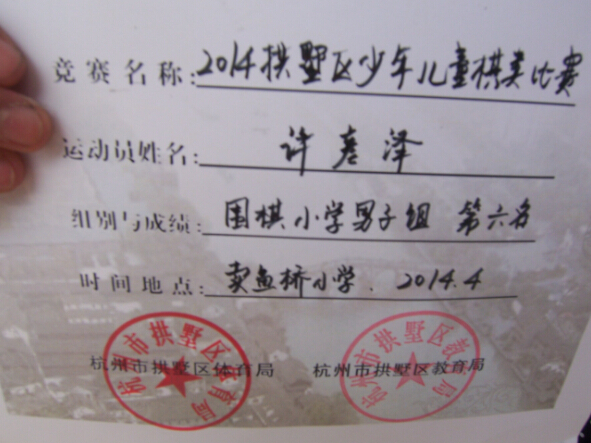 竞赛名称:2014拱墅区少年儿童棋类比赛
运动员姓名:许彦泽
组别与成绩:围棋小学男子组 第六名
时间地点:卖鱼桥小学. 2014.4
杭州市拱墅区体育局 杭州市拱墅区教育局
杭州市拱墅区体育局 杭州市拱墅区教育局